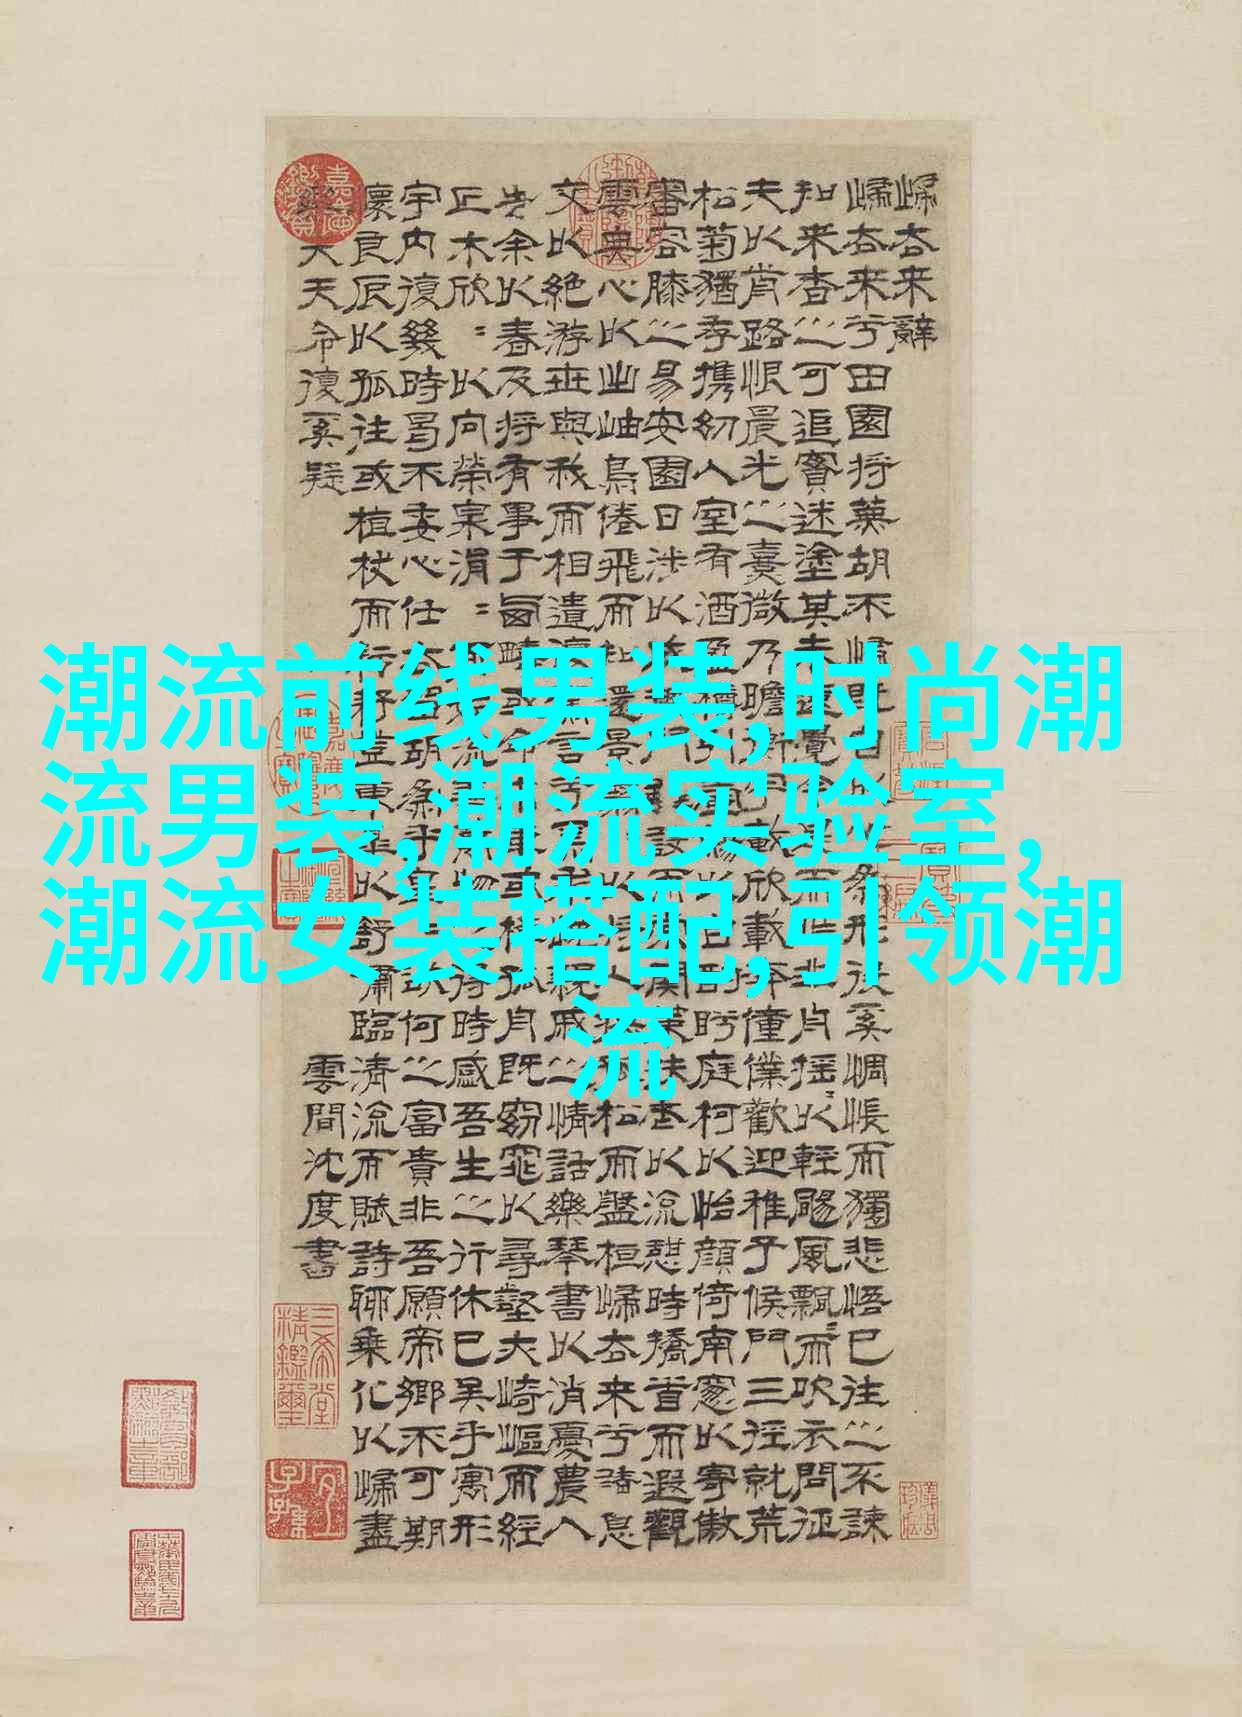 歸去来辭
歸去来兮田園将蕪胡不歸既自以心為形役奚惆悵而獨悲悟已往之不諫
知来者之可追實迷塗其未遠覺今是而昨非舟搖〻以輕颺風飄〻而吹衣問征
夫以前路恨晨光之熹微乃瞻衡宇載欣載奔僮僕歡迎稚子候門三徑就荒
松菊猶存携幼入室有酒盈樽引壺觴以自酌眄庭柯以怡顔倚南窻以寄傲
審容膝之易安園日涉以成趣門雖設而常関策扶老以流憩時矯首而遐觀
雲無心以出岫鳥倦飛而知還景翳〻以将入撫孤松而盤桓歸去来兮請息
交以絶游世與我而相遺復駕言兮焉求悦親戚之情話樂琴書以消憂農人
告余以春及将有事于西疇或命巾車或棹孤舟既窈窕以尋壑亦崎嶇而經
丘木欣〻以向榮泉涓〻而始流善萬物之得時感吾生之行休已矣乎寓形
宇内復幾時曷不委心任去留胡為乎皇〻欲何之富貴非吾願帝鄉不可期
懷良辰以孤往或植杖而耘耔登東皋以舒嘯臨清流而賦詩聊乗化以歸盡
樂夫天命復奚疑
雲間沈度書
三希堂精鑑璽
宜子孫
潮流前线男装,时尚潮
流男装,潮流实验室,
潮流女装搭配,引领潮
流